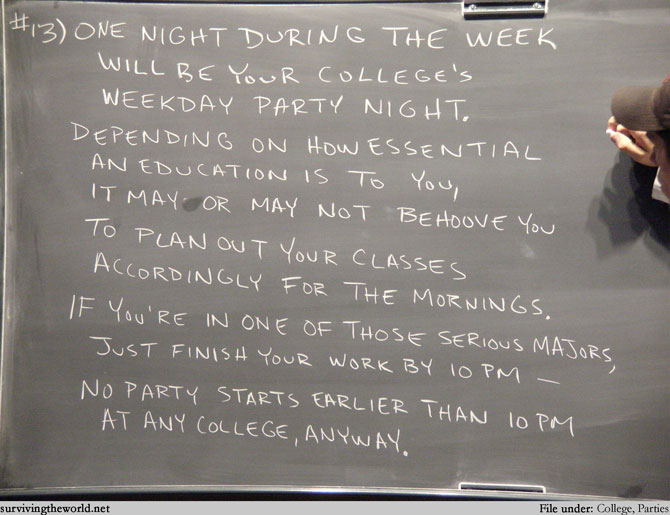 #13) ONE NIGHT DURING THE WEEK
WILL BE YOUR COLLEGE'S
WEEKDAY PARTY NIGHT.
DEPENDING ON HOW ESSENTIAL
AN EDUCATION IS TO YOU,
IT MAY OR MAY NOT BEHOOVE YOU
TO PLAN OUT YOUR CLASSES
ACCORDINGLY FOR THE MORNINGS.
IF YOU'RE IN ONE OF THOSE SERIOUS MAJORS,
JUST FINISH YOUR WORK BY 10 PM —
NO PARTY STARTS EARLIER THAN 10 PM
AT ANY COLLEGE, ANYWAY.
survivingtheworld.net File under: College, Parties